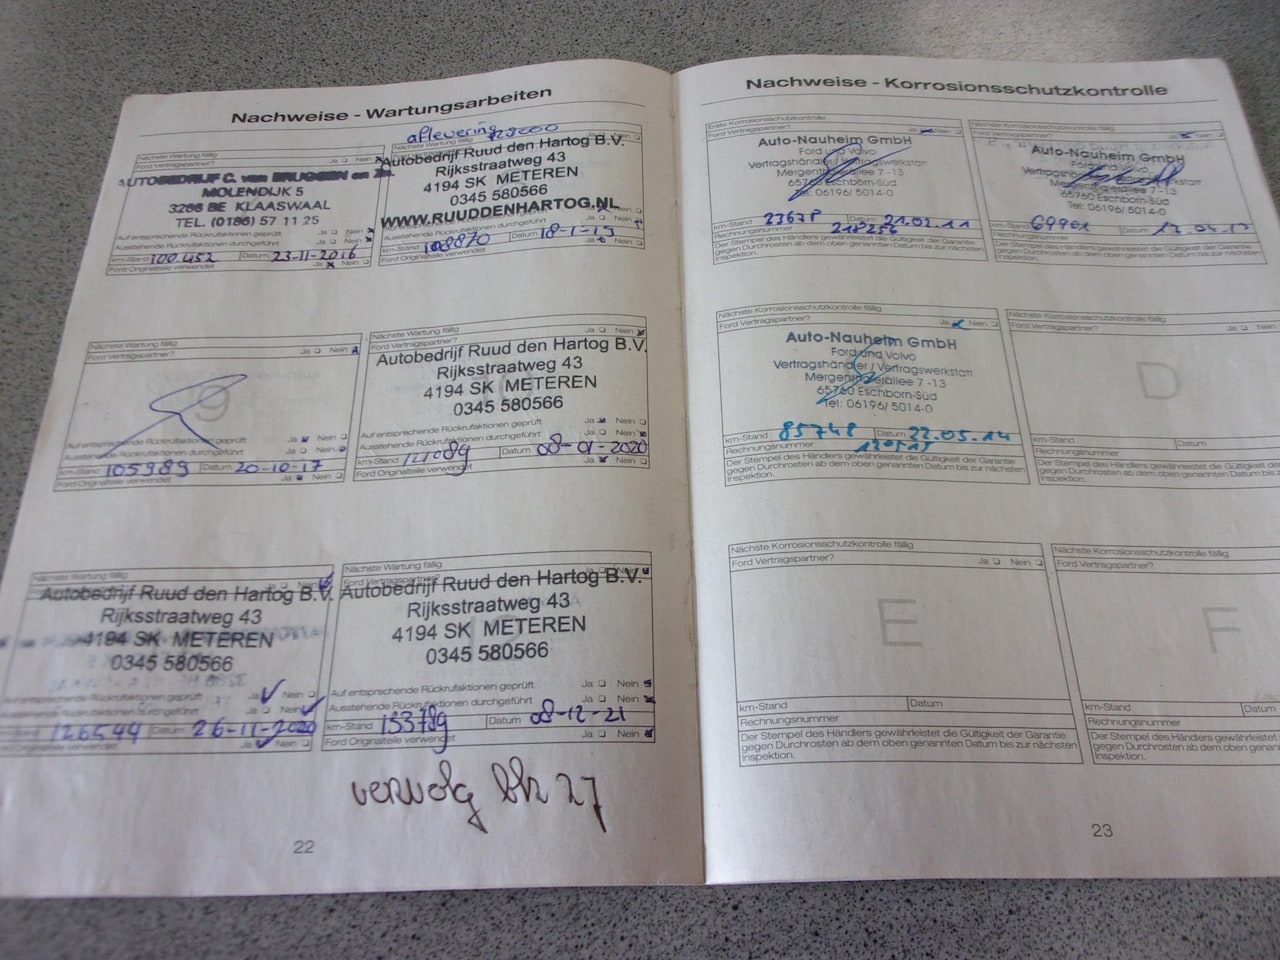 Nachweise - Wartungsarbeiten
Nächste Wartung fällig
Ford Vertragspartner? Ja Nein
AUTOBEDRIJF C. van BRUGGEN en Zn.
MOLENDIJK 5
3286 BE KLAASWAAL
TEL. (0186) 57 11 25
Auf entsprechende Rückrufaktionen geprüft Ja Nein
Ausstehende Rückrufaktionen durchgeführt Ja Nein
km-Stand 100.452 Datum 23-11-2016
Ford Originalteile verwendet Ja Nein
aflevering
Autobedrijf Ruud den Hartog B.V.
Rijksstraatweg 43
4194 SK METEREN
0345 580566
WWW.RUUDDENHARTOG.NL
Ausstehende Rückrufaktionen durchgeführt
km-Stand 108870 Datum 18-1-19
Ford Originalteile verwendet Ja Nein
Nächste Wartung fällig
Ford Vertragspartner? Ja Nein
Auf entsprechende Rückrufaktionen geprüft Ja Nein
Ausstehende Rückrufaktionen durchgeführt Ja Nein
km-Stand 105989 Datum 20-10-17
Ford Originalteile verwendet Ja Nein
Nächste Wartung fällig
Ford Vertragspartner? Ja Nein
Autobedrijf Ruud den Hartog B.V.
Rijksstraatweg 43
4194 SK METEREN
0345 580566
Auf entsprechende Rückrufaktionen geprüft Ja Nein
Ausstehende Rückrufaktionen durchgeführt Ja Nein
km-Stand 121089 Datum 08-01-2020
Ford Originalteile verwendet Ja Nein
Nächste Wartung fällig
Ja Nein
Autobedrijf Ruud den Hartog B.V.
Rijksstraatweg 43
4194 SK METEREN
0345 580566
Auf entsprechende Rückrufaktionen geprüft Ja Nein
Ausstehende Rückrufaktionen durchgeführt Ja Nein
km-Stand 126544 Datum 26-11-2020
Ford Originalteile verwendet Ja Nein
Nächste Wartung fällig
Ford Vertragspartner? Ja Nein
Autobedrijf Ruud den Hartog B.V.
Rijksstraatweg 43
4194 SK METEREN
0345 580566
Auf entsprechende Rückrufaktionen geprüft Ja Nein
Ausstehende Rückrufaktionen durchgeführt Ja Nein
km-Stand 133789 Datum 08-12-21
Ford Originalteile verwendet Ja Nein
vervolg blz 27
22
Nachweise - Korrosionsschutzkontrolle
Erste Korrosionsschutzkontrolle
Ford Vertragspartner? Ja Nein
Auto-Nauheim GmbH
Ford und Volvo
Vertragshändler / Vertragswerkstatt
Mergenthalerallee 7 -13
65760 Eschborn-Süd
Tel: 06196/ 5014-0
km-Stand 23678 Datum 21.02.11
Rechnungsnummer 218256
Der Stempel des Händlers gewährleistet die Gültigkeit der Garantie
gegen Durchrosten ab dem oben genannten Datum bis zur nächsten
Inspektion.
Nächste Korrosionsschutzkontrolle fällig
Auto-Nauheim GmbH
Ford und Volvo
Mergenthalerallee 7 -13
65760 Eschborn-Süd
Tel: 06196/ 5014-0
km-Stand Datum
Rechnungsnummer
Der Stempel des Händlers gewährleistet die Gültigkeit der Garantie
gegen Durchrosten ab dem oben genannten Datum bis zur nächsten
Inspektion.
Nächste Korrosionsschutzkontrolle fällig
Ford Vertragspartner? Ja Nein
Auto-Nauheim GmbH
Ford und Volvo
Vertragshändler / Vertragswerkstatt
Mergenthalerallee 7 -13
65760 Eschborn-Süd
Tel: 06196/ 5014-0
km-Stand 85748 Datum 22.05.14
Rechnungsnummer
Der Stempel des Händlers gewährleistet die Gültigkeit der Garantie
gegen Durchrosten ab dem oben genannten Datum bis zur nächsten
Inspektion.
Nächste Korrosionsschutzkontrolle fällig
Ford Vertragspartner? Ja
D
km-Stand Datum
Rechnungsnummer
Der Stempel des Händlers gewährleistet die Gültigkeit
gegen Durchrosten ab dem oben genannten Datum bis
Inspektion.
Nächste Korrosionsschutzkontrolle fällig
Ford Vertragspartner? Ja Nein
E
km-Stand Datum
Rechnungsnummer
Der Stempel des Händlers gewährleistet die Gültigkeit der Garantie
gegen Durchrosten ab dem oben genannten Datum bis zur nächsten
Inspektion.
Nächste Korrosionsschutzkontrolle fällig
Ford Vertragspartner?
F
km-Stand Datum
Rechnungsnummer
Der Stempel des Händlers gewährleistet
gegen Durchrosten ab dem oben genannten
Inspektion.
23